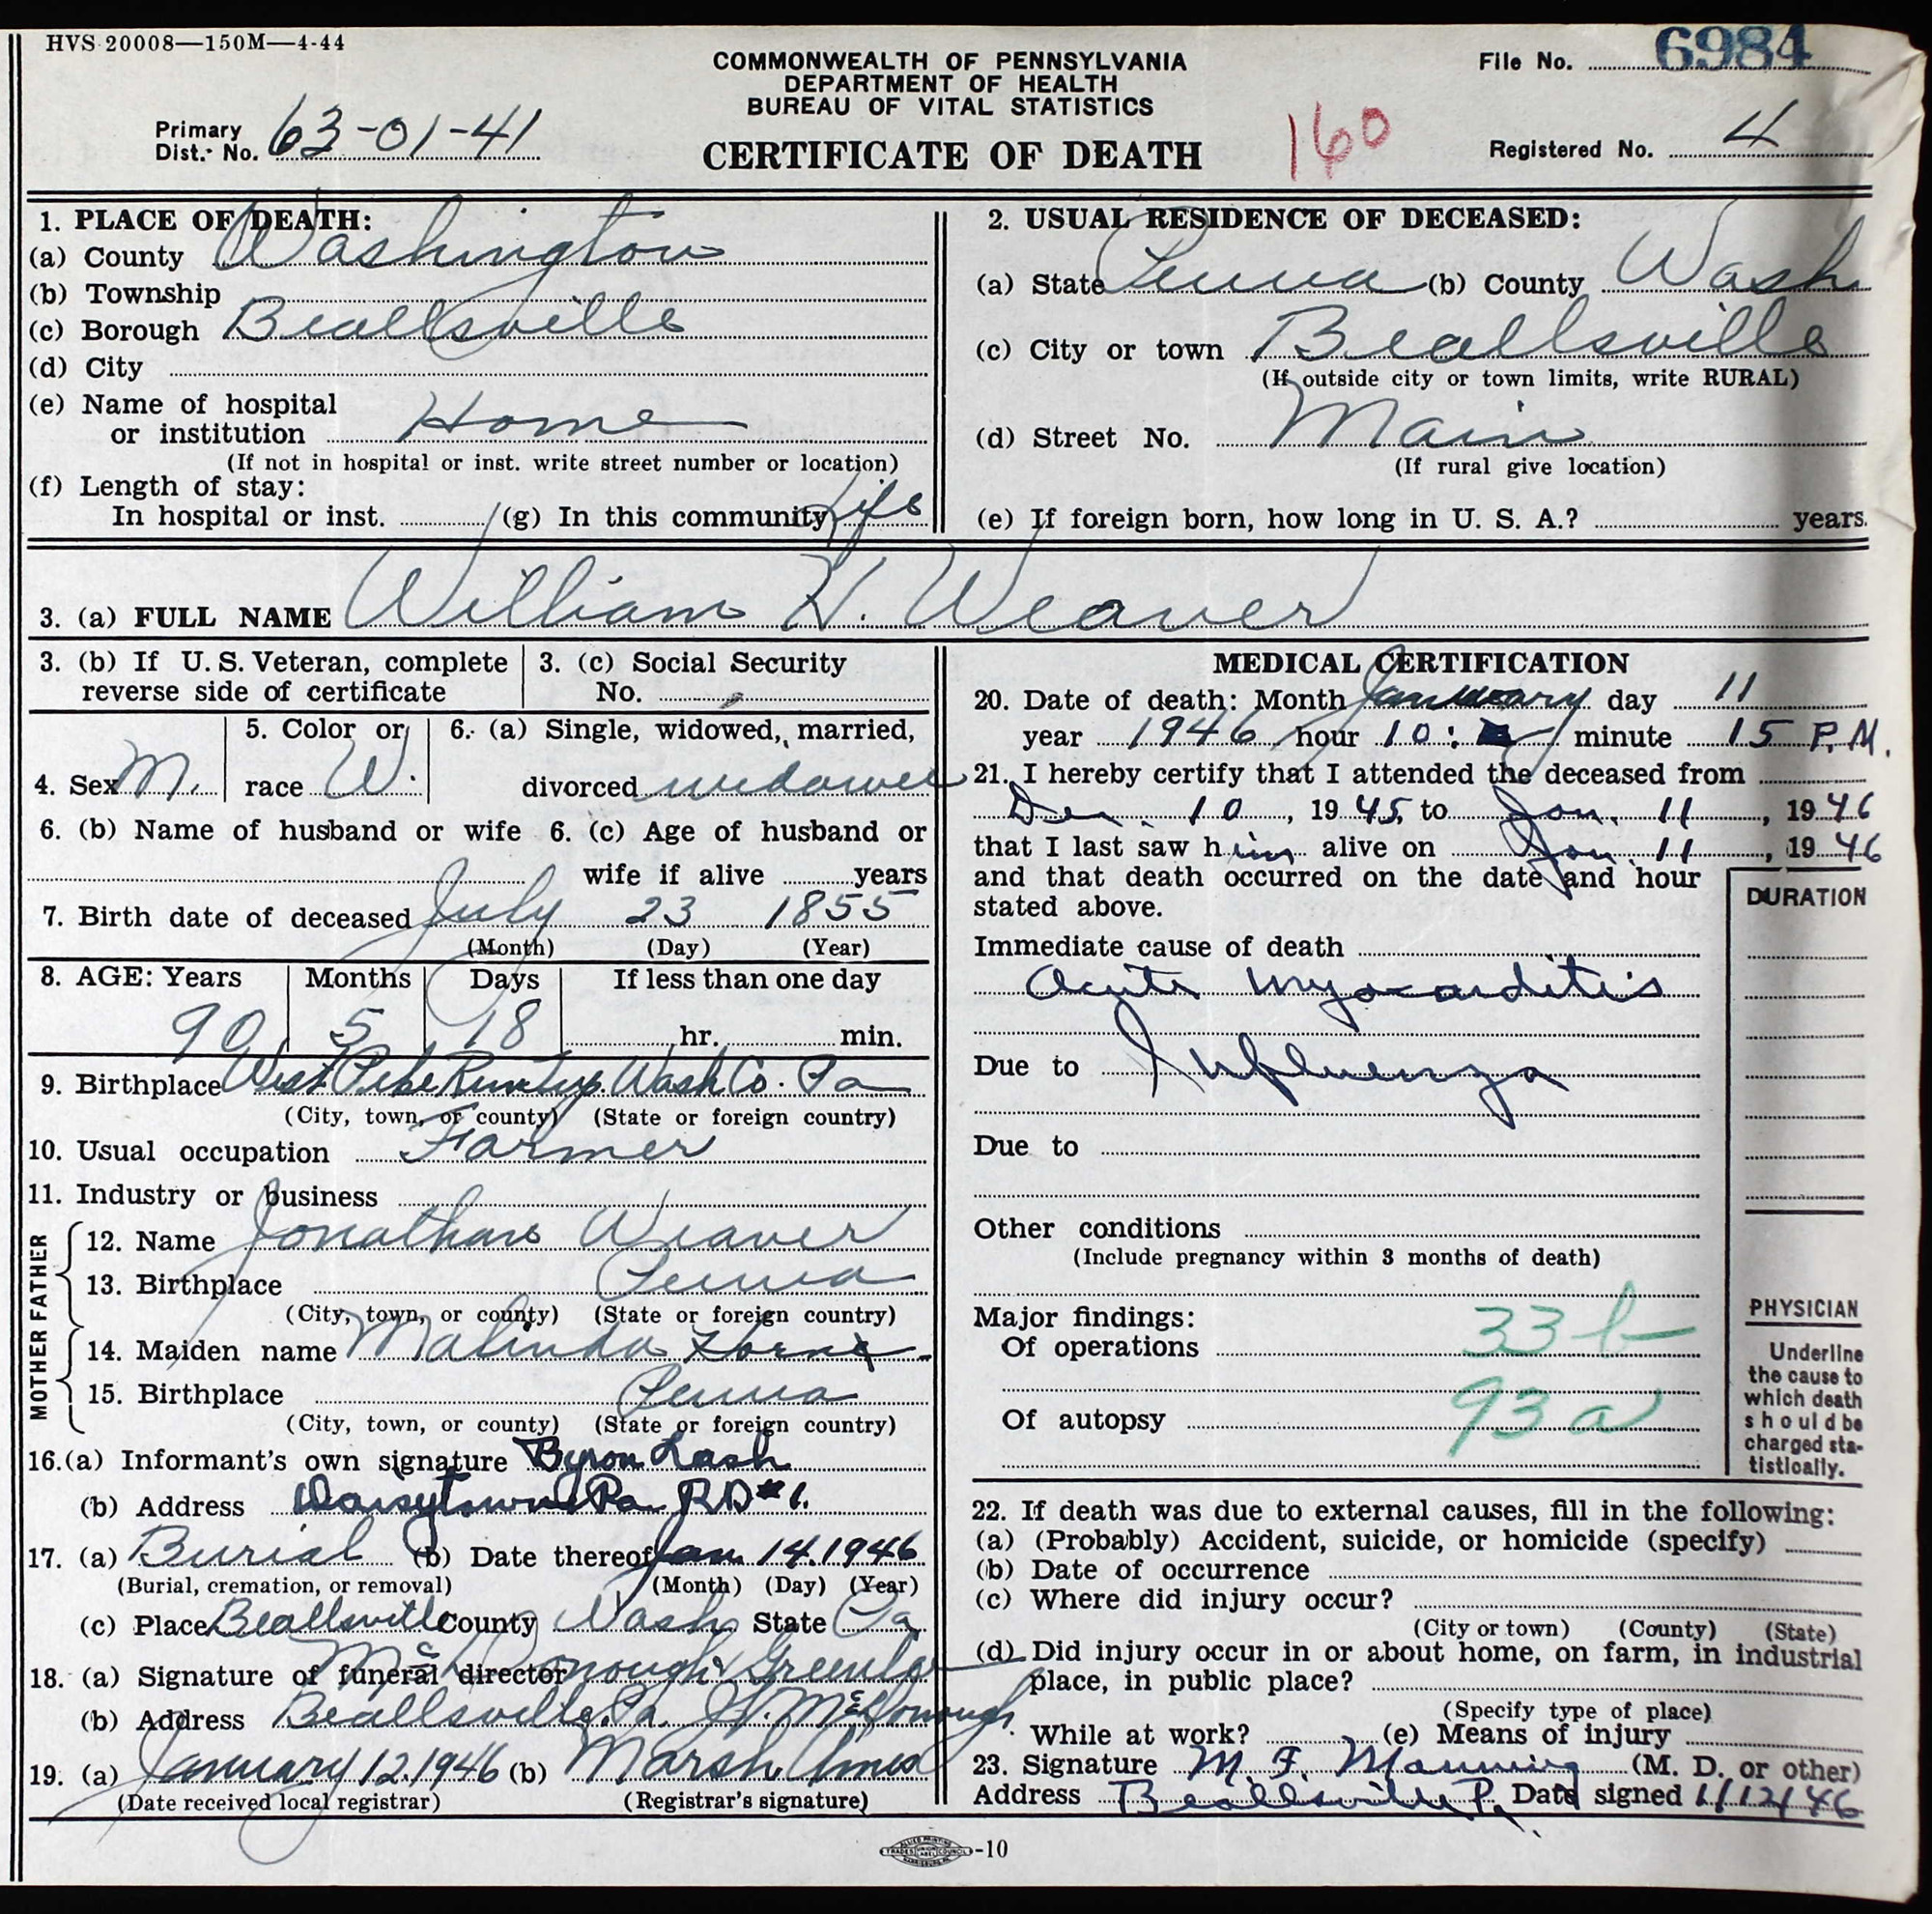 HVS 20008—150M—4-44
COMMONWEALTH OF PENNSYLVANIA
DEPARTMENT OF HEALTH
BUREAU OF VITAL STATISTICS
CERTIFICATE OF DEATH
File No. 6984
Primary Dist. No. 63-01-41
160
Registered No. 4
1. PLACE OF DEATH:
(a) County Washington
(b) Township
(c) Borough Beallsville
(d) City
(e) Name of hospital
or institution Home
(If not in hospital or inst. write street number or location)
(f) Length of stay:
In hospital or inst. (g) In this community Life
2. USUAL RESIDENCE OF DECEASED:
(a) State Penna (b) County Wash
(c) City or town Beallsville
(If outside city or town limits, write RURAL)
(d) Street No. Main
(If rural give location)
(e) If foreign born, how long in U. S. A.? years.
3. (a) FULL NAME William H. Weaver
3. (b) If U. S. Veteran, complete
reverse side of certificate
3. (c) Social Security
No.
4. Sex M.
5. Color or
race W.
6. (a) Single, widowed, married,
divorced widower
6. (b) Name of husband or wife 6. (c) Age of husband or
wife if alive years
7. Birth date of deceased July 23 1855
(Month) (Day) (Year)
8. AGE: Years Months Days If less than one day
90 5 18 hr. min.
9. Birthplace West Pike Run twp. Wash Co. Pa
(City, town, or county) (State or foreign country)
10. Usual occupation Farmer
11. Industry or business
FATHER
12. Name Jonathan Weaver
13. Birthplace Penna
(City, town, or county) (State or foreign country)
MOTHER
14. Maiden name Malinda
15. Birthplace Penna
(City, town, or county) (State or foreign country)
16.(a) Informant's own signature Byron Lash
(b) Address Daisytown Pa. RD #1.
17. (a) Burial (b) Date thereof Jan. 14. 1946
(Burial, cremation, or removal) (Month) (Day) (Year)
(c) Place Beallsville County Wash State Pa
18. (a) Signature of funeral director McDonough & Greenlee
(b) Address Beallsville, Pa. McDonough
19. (a) January 12. 1946 (b) Marsh
(Date received local registrar) (Registrar's signature)
MEDICAL CERTIFICATION
20. Date of death: Month January day 11
year 1946 hour 10: minute 15 P.M.
21. I hereby certify that I attended the deceased from
Dec. 10, 1945, to Jan. 11, 1946
that I last saw him alive on Jan. 11, 1946
and that death occurred on the date and hour
stated above.
DURATION
Immediate cause of death
Acute Myocarditis
Due to Influenza
Due to
Other conditions
(Include pregnancy within 3 months of death)
Major findings:
Of operations 33 b
Of autopsy 93 a
PHYSICIAN
Underline
the cause to
which death
should be
charged sta-
tistically.
22. If death was due to external causes, fill in the following:
(a) (Probably) Accident, suicide, or homicide (specify)
(b) Date of occurrence
(c) Where did injury occur?
(City or town) (County) (State)
(d) Did injury occur in or about home, on farm, in industrial
place, in public place?
(Specify type of place)
While at work? (e) Means of injury
23. Signature M. F. Manning (M. D. or other)
Address Beallsville Pa. Date signed 1/12/46
-10